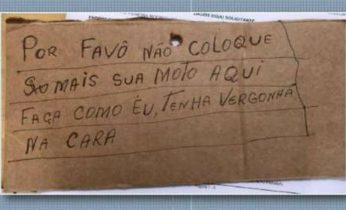 POR FAVÔ NÃO COLOQUE
MAIS SUA MOTO AQUI
FAÇA COMO ÉU, TENHA VERGONHA
NA CARA